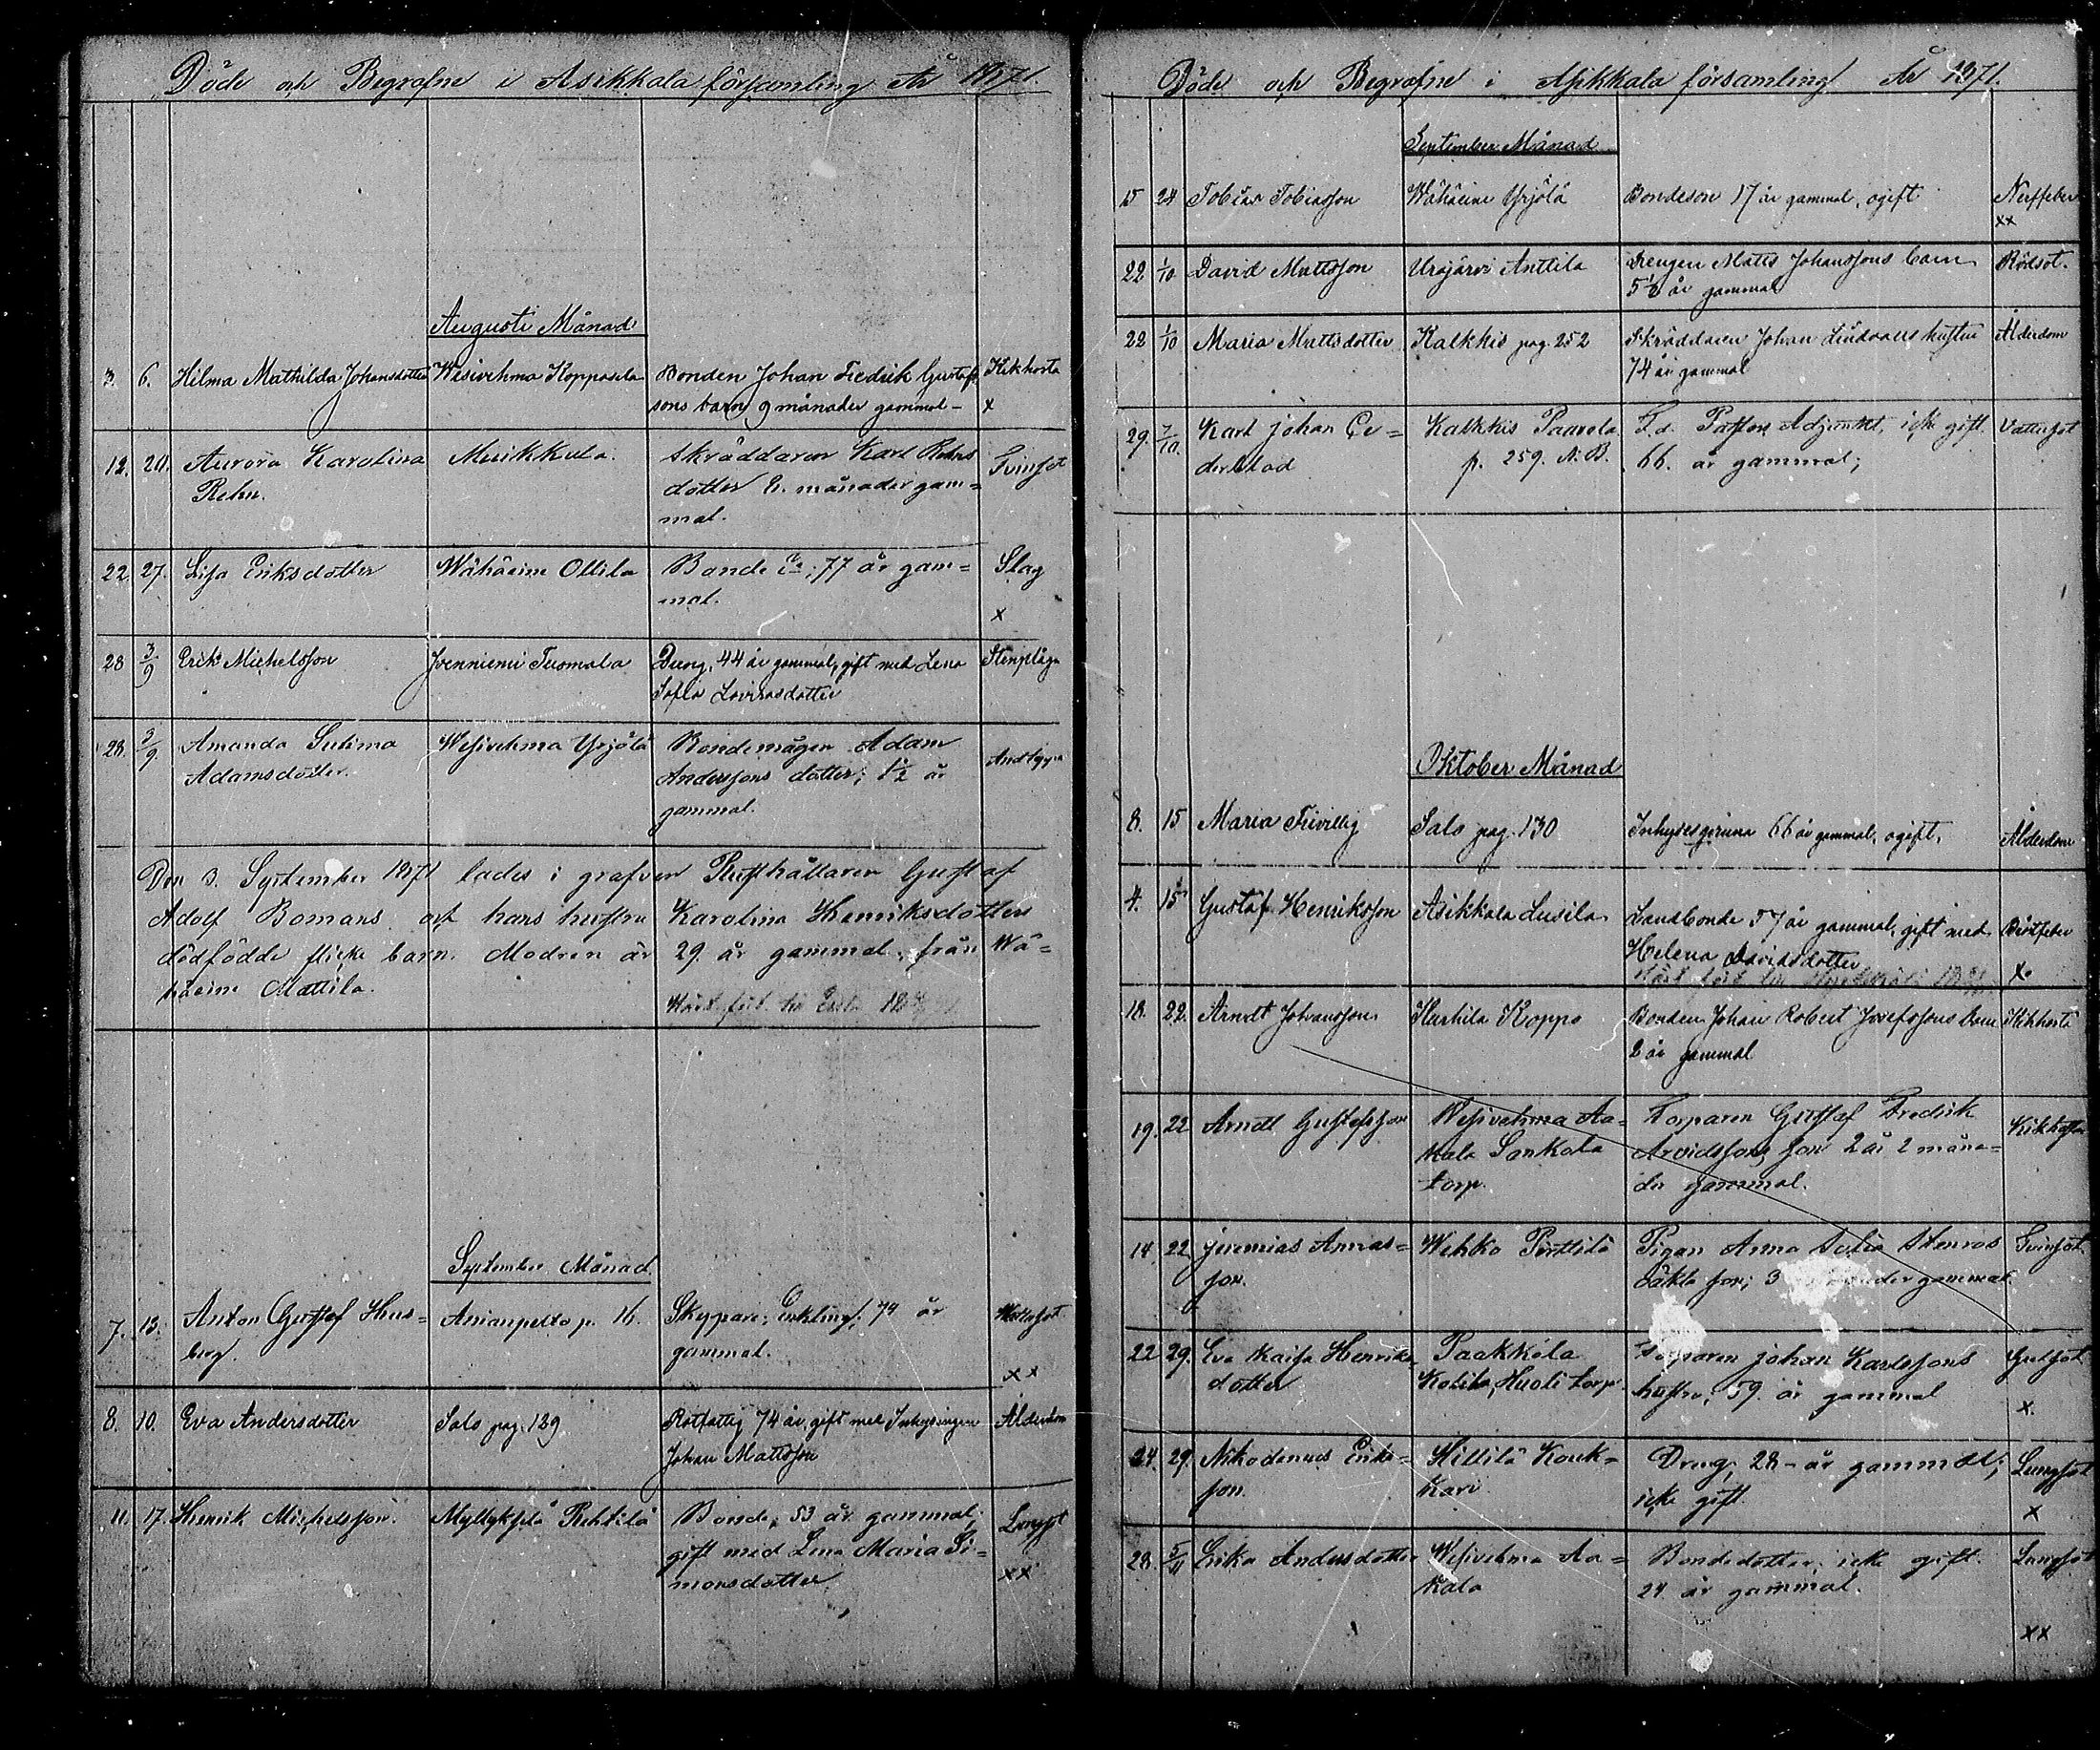 Döde och Begrafne i Asikkala församling År 1871.
Augusti Månad
3. 6. Hilma Mathilda Johansdotter Wesivehma Koppasela Bonden Johan Fredrik Gustaf-
sons barn 9 månader gammal - Kikhosta
x
12. 20. Aurora Karolina Musikkula. Skräddaren Karl Rehns
Rehn. dotter 8. månader gam=
mal.
22 27. Lisa Eriksdotter Wähäeine Ollila Bonde 77 år gam= Slag
mal.
x
28 3/9 Erik Michelsson Joenniemi Tuomala Dreng, 44 år gammal, gift med Lena Stenplåga
Sofia
28. 3/9. Amanda Wesivehma Yrjölä Bondemågen Adam
Adamsdotter. Anderssons dotter; 1½ år
gammal.
Den 3. September 1871 lades i grafven Rusthållaren Gustaf
Adolf Bomans och hans hustru Karolina Henriksdotters
dödfödde flicke barn. Modren är 29 år gammal, från Wä-
häeine Mattila.
September Månad
7. 13. Anton Gustaf Hus= Anianpelto p. 16. Skeppare; Enkling; 74 år Wattusot
berg. gammal.
xx
8. 10. Eva Andersdotter Salo pag. 129 Rotfattig 74 år, gift med Inhysingen Ålderdom
Johan Mattsson
11. 17. Henrik Michelsson. Myllykselä Rehtilä Bonde, 53 år gammal; Lungsot
gift med Lena Maria Si=
monsdotter. xx
Döde och Begrafne i Asikkala församling År 1871.
September Månad
15 24 Tobias Tobiasson Wähäeine Yrjölä Bondeson 17 år gammal, ogift Nerffeber
xx
22 1/10 David Mattsson Urajärvi Anttila Drengen Matts Johanssons barn Rödsot.
5½ år gammal
22 1/10 Maria Mattsdotter Kalkkis pag. 252 Skräddaren Johan hustru Ålderdom
74 år gammal
29. 7/10. Karl Johan Ce= Kalkkis Paavola F.d. Pastors Adjunkt, icke gift Vattusot
derstad p. 259. N.B. 66. år gammal;
Oktober Månad
8. 15 Maria Frivillig Salo pag. 130 Inhysesqvinna 66 år gammal, ogift, Ålderdom
4. 15 Gustaf Henriksson Asikkala Lusila Landbonde 57 år gammal, gift med
Helena Davidsdotter x
18. 22. Arndt Johansson Kurhila Koppo Bonden Johan Robert Josefssons barn Kikhosta
2 år gammal
19. 22 Arndt Gustafsson Wesivehma Aa= Torparen Gustaf Fredrik Kikhosta
kala Sankola Arvidssons son 2 år 2 måna=
torp. der gammal.
14. 22 Jeremias Annas= Wehko Perttilä Pigan Anna Sofia Stenros
son. oäkta son; 3 gammal
22 29. Eva Kaisa Henriks Paakkola Torparen Johan Karlssons Gulsot
dotter Kolila, Huoli torp hustru, 59. år gammal
x
24. 29. Nikodemus Eriks= Hillilä Kouk= Dreng; 28 - år gammal; Lungsot
son. kari icke gift.
x
28. 5/11 Erika Andersdotter Wesivehma Aa= Bondedotter; icke gift. Lungsot
kala 24 år gammal.
xx